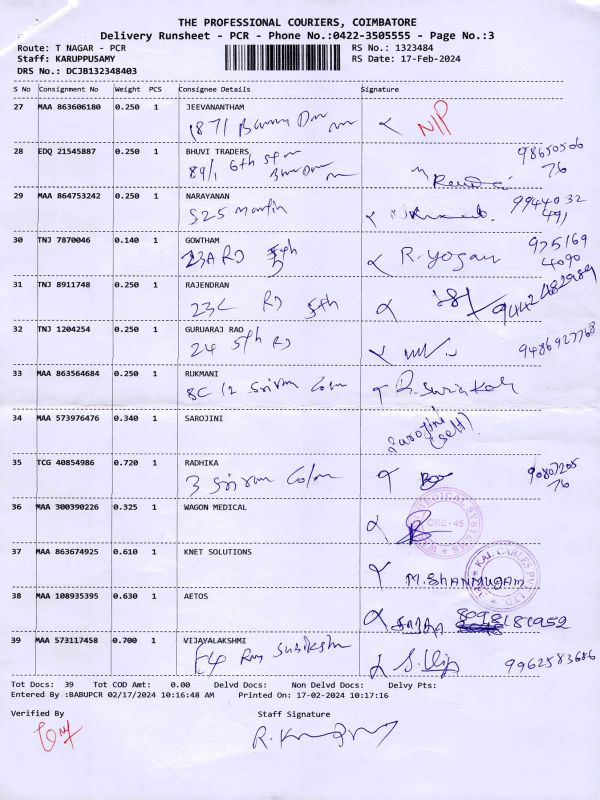 THE PROFESSIONAL COURIERS, COIMBATORE
Delivery Runsheet - PCR - Phone No.:0422-3505555 - Page No.:3
Route: T NAGAR - PCR RS No.: 1323484
Staff: KARUPPUSAMY RS Date: 17-Feb-2024
DRS No.: DCJB132348403
S No Consignment No Weight PCS Consignee Details Signature
27 MAA 863606180 0.250 1 JEEVANANTHAM
187/ N/P
28 EDQ 21545887 0.250 1 BHUVI TRADERS 98650506
89/1 6th 76
29 MAA 864753242 0.250 1 NARAYANAN 9944032
S25 491
30 TNJ 7870046 0.140 1 GOWTHAM 975169
23A RD 5th R. Yogan 4090
31 TNJ 8911748 0.250 1 RAJENDRAN
23C RD 5th 9442482989
32 TNJ 1204254 0.250 1 GURUARAJ RAO
24 5th RD 9486927768
33 MAA 863564684 0.250 1 RUKMANI
8C/2 Sriram
34 MAA 573976476 0.340 1 SAROJINI Sarojini
(self).
35 TCG 40854986 0.720 1 RADHIKA 90807205
3 Sriram 76
36 MAA 300390226 0.325 1 WAGON MEDICAL
CBE-45
37 MAA 863674925 0.610 1 KNET SOLUTIONS
M. SHANMUGAM
38 MAA 108935395 0.630 1 AETOS
8098181952
39 MAA 573117458 0.700 1 VIJAYALAKSHMI
F4 9962583686
Tot Docs: 39 Tot COD Amt: 0.00 Delvd Docs: Non Delvd Docs: Delvy Pts:
Entered By :BABUPCR 02/17/2024 10:16:48 AM Printed On: 17-02-2024 10:17:16
Verified By Staff Signature